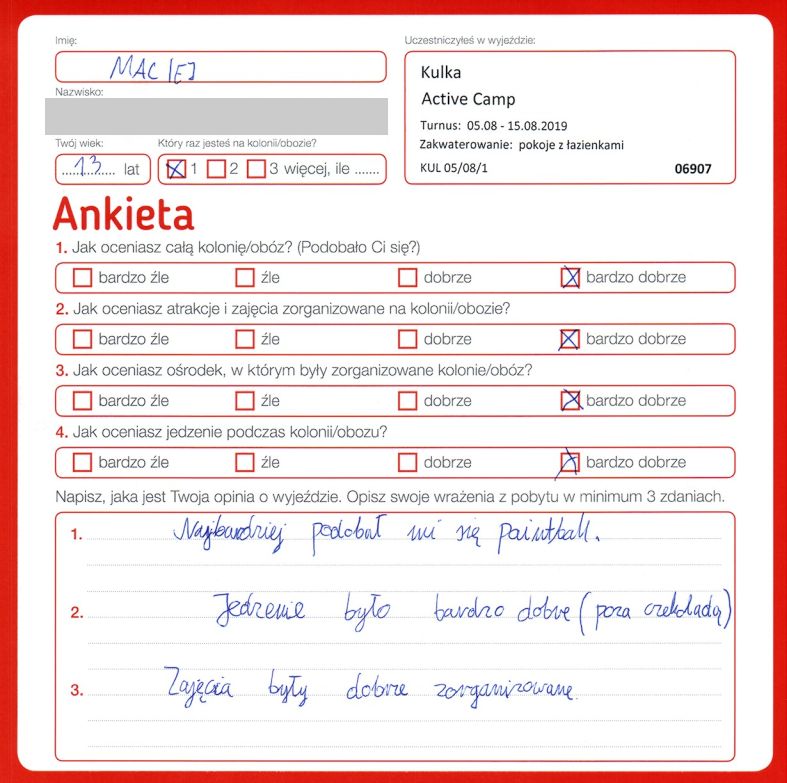 Imię:
MACIEJ
Nazwisko:
Twój wiek:
13 lat
Który raz jesteś na kolonii/obozie?
1 2 3 więcej, ile .......
Uczestniczyłeś w wyjeździe:
Kulka
Active Camp
Turnus: 05.08 - 15.08.2019
Zakwaterowanie: pokoje z łazienkami
KUL 05/08/1 06907
Ankieta
1. Jak oceniasz całą kolonię/obóz? (Podobało Ci się?)
bardzo źle źle dobrze bardzo dobrze
2. Jak oceniasz atrakcje i zajęcia zorganizowane na kolonii/obozie?
bardzo źle źle dobrze bardzo dobrze
3. Jak oceniasz ośrodek, w którym były zorganizowane kolonie/obóz?
bardzo źle źle dobrze bardzo dobrze
4. Jak oceniasz jedzenie podczas kolonii/obozu?
bardzo źle źle dobrze bardzo dobrze
Napisz, jaka jest Twoja opinia o wyjeździe. Opisz swoje wrażenia z pobytu w minimum 3 zdaniach.
1. Najbardziej podobał mi się paintball.
2. Jedzenie było bardzo dobre (poza czekoladą)
3. Zajęcia były dobrze zorganizowane.